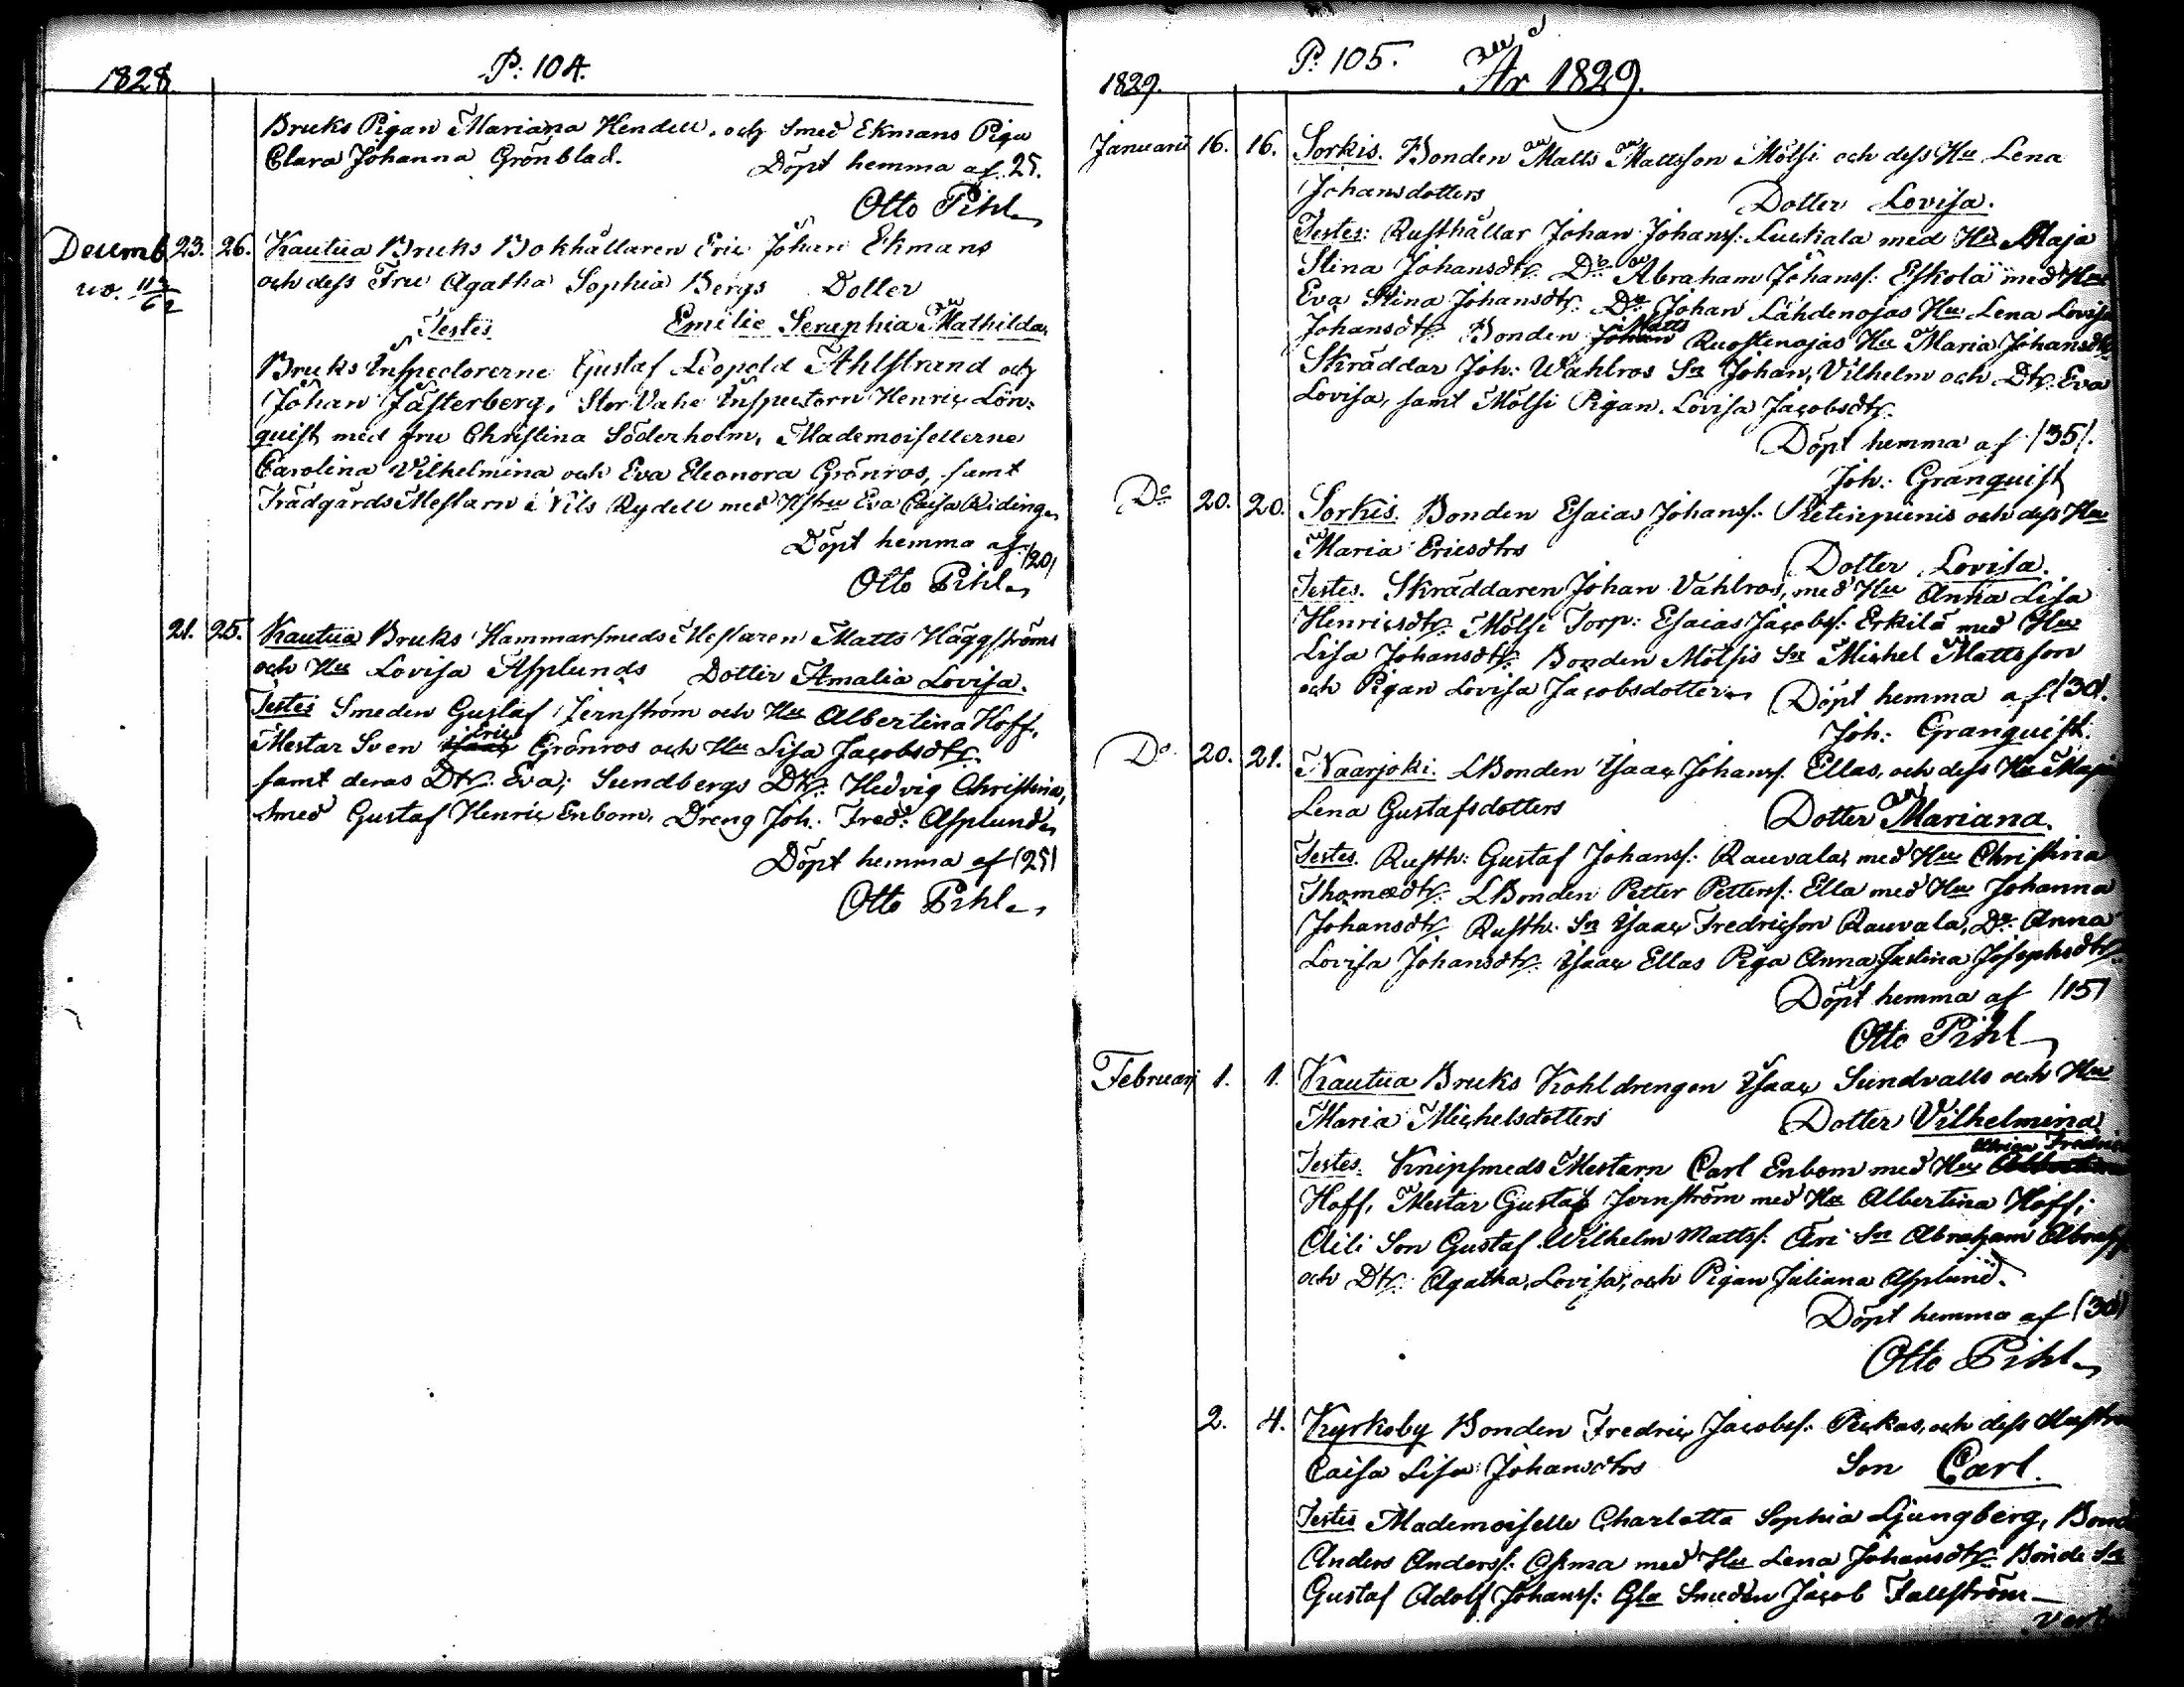 1828. P: 104.
Bruks Pigan Mariana Hendell, och Smed Ekmans Piga
Clara Johanna Grönblad. Döpt hemma af 25.
Otto Pihl
Decemb 23. 26. Kautua Bruks Bokhållaren Eric Johan Ekmans
och dess Fru Agatha Sophia Bergs Dotter
Testes Emilie Seraphia Mathilda
Bruks Inspectorerne Gustaf Leopold Ahlstrand och
Johan Fästerberg, Stor Vahe Inspectorn Henric Lön-
quist med fru Christina Söderholm, Mademoisellerne
Carolina Vilhelmina och Eva Eleonora Grönros, samt
Trädgårds Mestarn Nils Rydell med Hstru Eva Caisa Widing
Döpt hemma af (20)
Otto Pihl
21. 25. Kautua Bruks Hammarsmeds Mestaren Matts Häggströms
och Hu Lovisa Asplunds Dotter Amalia Lovisa.
Testes Smeden Gustaf Jernström och Hu Albertina Hoff,
Mestar Sven Eric Grönros och Hu Lisa Jacobsdtr.
samt deras Dtr. Eva; Sundbergs Dtr: Hedvig Christina,
Smed Gustaf Henric Enbom, Dreng Joh. Fred: Asplund
Döpt hemma af (25)
Otto Pihl
1829. P: 105. År 1829.
Januarii 16. 16. Sorkis. Bonden Matts Mattsson Mölsi och dess Hu Lena
Johansdotters Dotter Lovisa.
Testes: Rusthållar Johan Johanss: Luckala med Hu Maja
Stina Johansdtr. Do Abraham Johanss: Eskola med Hu
Eva Stina Johansdtr. Do Johan Lähdenojas Hu Lena Lovisa
Johansdtr. Bonden Matts Ruostenojas Hu Maria Johansdtr
Skräddar Joh: Wahlros Sn Johan Vilhelm och Dtr. Eva
Lovisa, samt Mölsi Pigan Lovisa Jacobsdtr.
Döpt hemma af (35).
Joh: Granquist
Do 20. 20. Sorkis. Bonden Esaias Johanss: och dess Hu
Maria Ericsdtrs Dotter Lovisa.
Testes. Skräddaren Johan Vahlros, med Hu Anna Lisa
Henricsdtr. Mölsi Torp: Esaias Jacobss: Erkilä med Hu
Lisa Johansdtr. Bonden Mölsis Sn Michel Mattsson
och Pigan Lovisa Jacobsdotter Döpt hemma af (30).
Joh: Granquist.
Do 20. 21. Naarjoki. LBonden Isaac Johanss. Ellas, och dess Hu Maja
Lena Gustafsdotters Dotter Mariana.
Testes. Rusth: Gustaf Johanss: Rauvala med Hu Christina
Thomædtr. LBonden Petter Petterss: Ella med Hu Johanna
Johansdtr. Rusth. Sn Isaac Fredricson Rauvala, Do Anna
Lovisa Johansdtr. Isaac Ellas Piga Anna Justina Josephsdtr.
Döpt hemma af (15)
Otto Pihl
Februari 1. 1. Kautua Bruks Kohldrengen Isaac Sundvalls och Hu
Maria Michelsdotters Dotter Vilhelmina
Testes. Knipsmeds Mestarn Carl Enbom med Hu Ulrica Fredrica
Hoff, Mestar Gustaf Jernström med Hu Albertina Hoff;
Aili Son Gustaf Wilhelm Mattss: Sn Abraham
och Dtr. Agatha Lovisa, och Pigan Juliana Asplund.
Döpt hemma af (30)
Otto Pihl
2. 4. Kyrkoby Bonden Fredric Jacobss: och dess Hustru
Caisa Lisa Johansdtrs Son Carl.
Testes Mademoiselle Charlotta Sophia Ljungberg, Bonde
Anders Anderss: med Hu Lena Johansdtr. Bonde Sn
Gustaf Adolf Johanss: Smeden Jacob Fallström
vert.